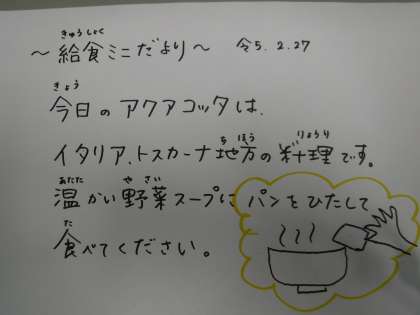 きゅうしょく
～給食ミニだより～ 令5.2.27
きょう
今日のアクアコッタは、
ちほう りょうり
イタリア、トスカーナ地方の料理です。
あたた やさい
温かい野菜スープにパンをひたして
た
食べてください。